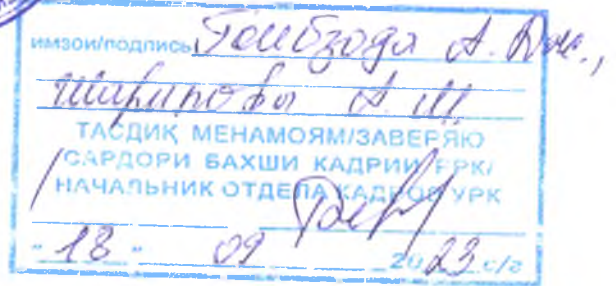 имзои/подпись Гоибзода А. Дж.,
Шариповы А. Ш.
ТАСДИҚ МЕНАМОЯМ/ЗАВЕРЯЮ
САРДОРИ БАХШИ КАДРИИ РРК/
НАЧАЛЬНИК ОТДЕЛА КАДРОВ УРК
"18" 09 2023 с/г